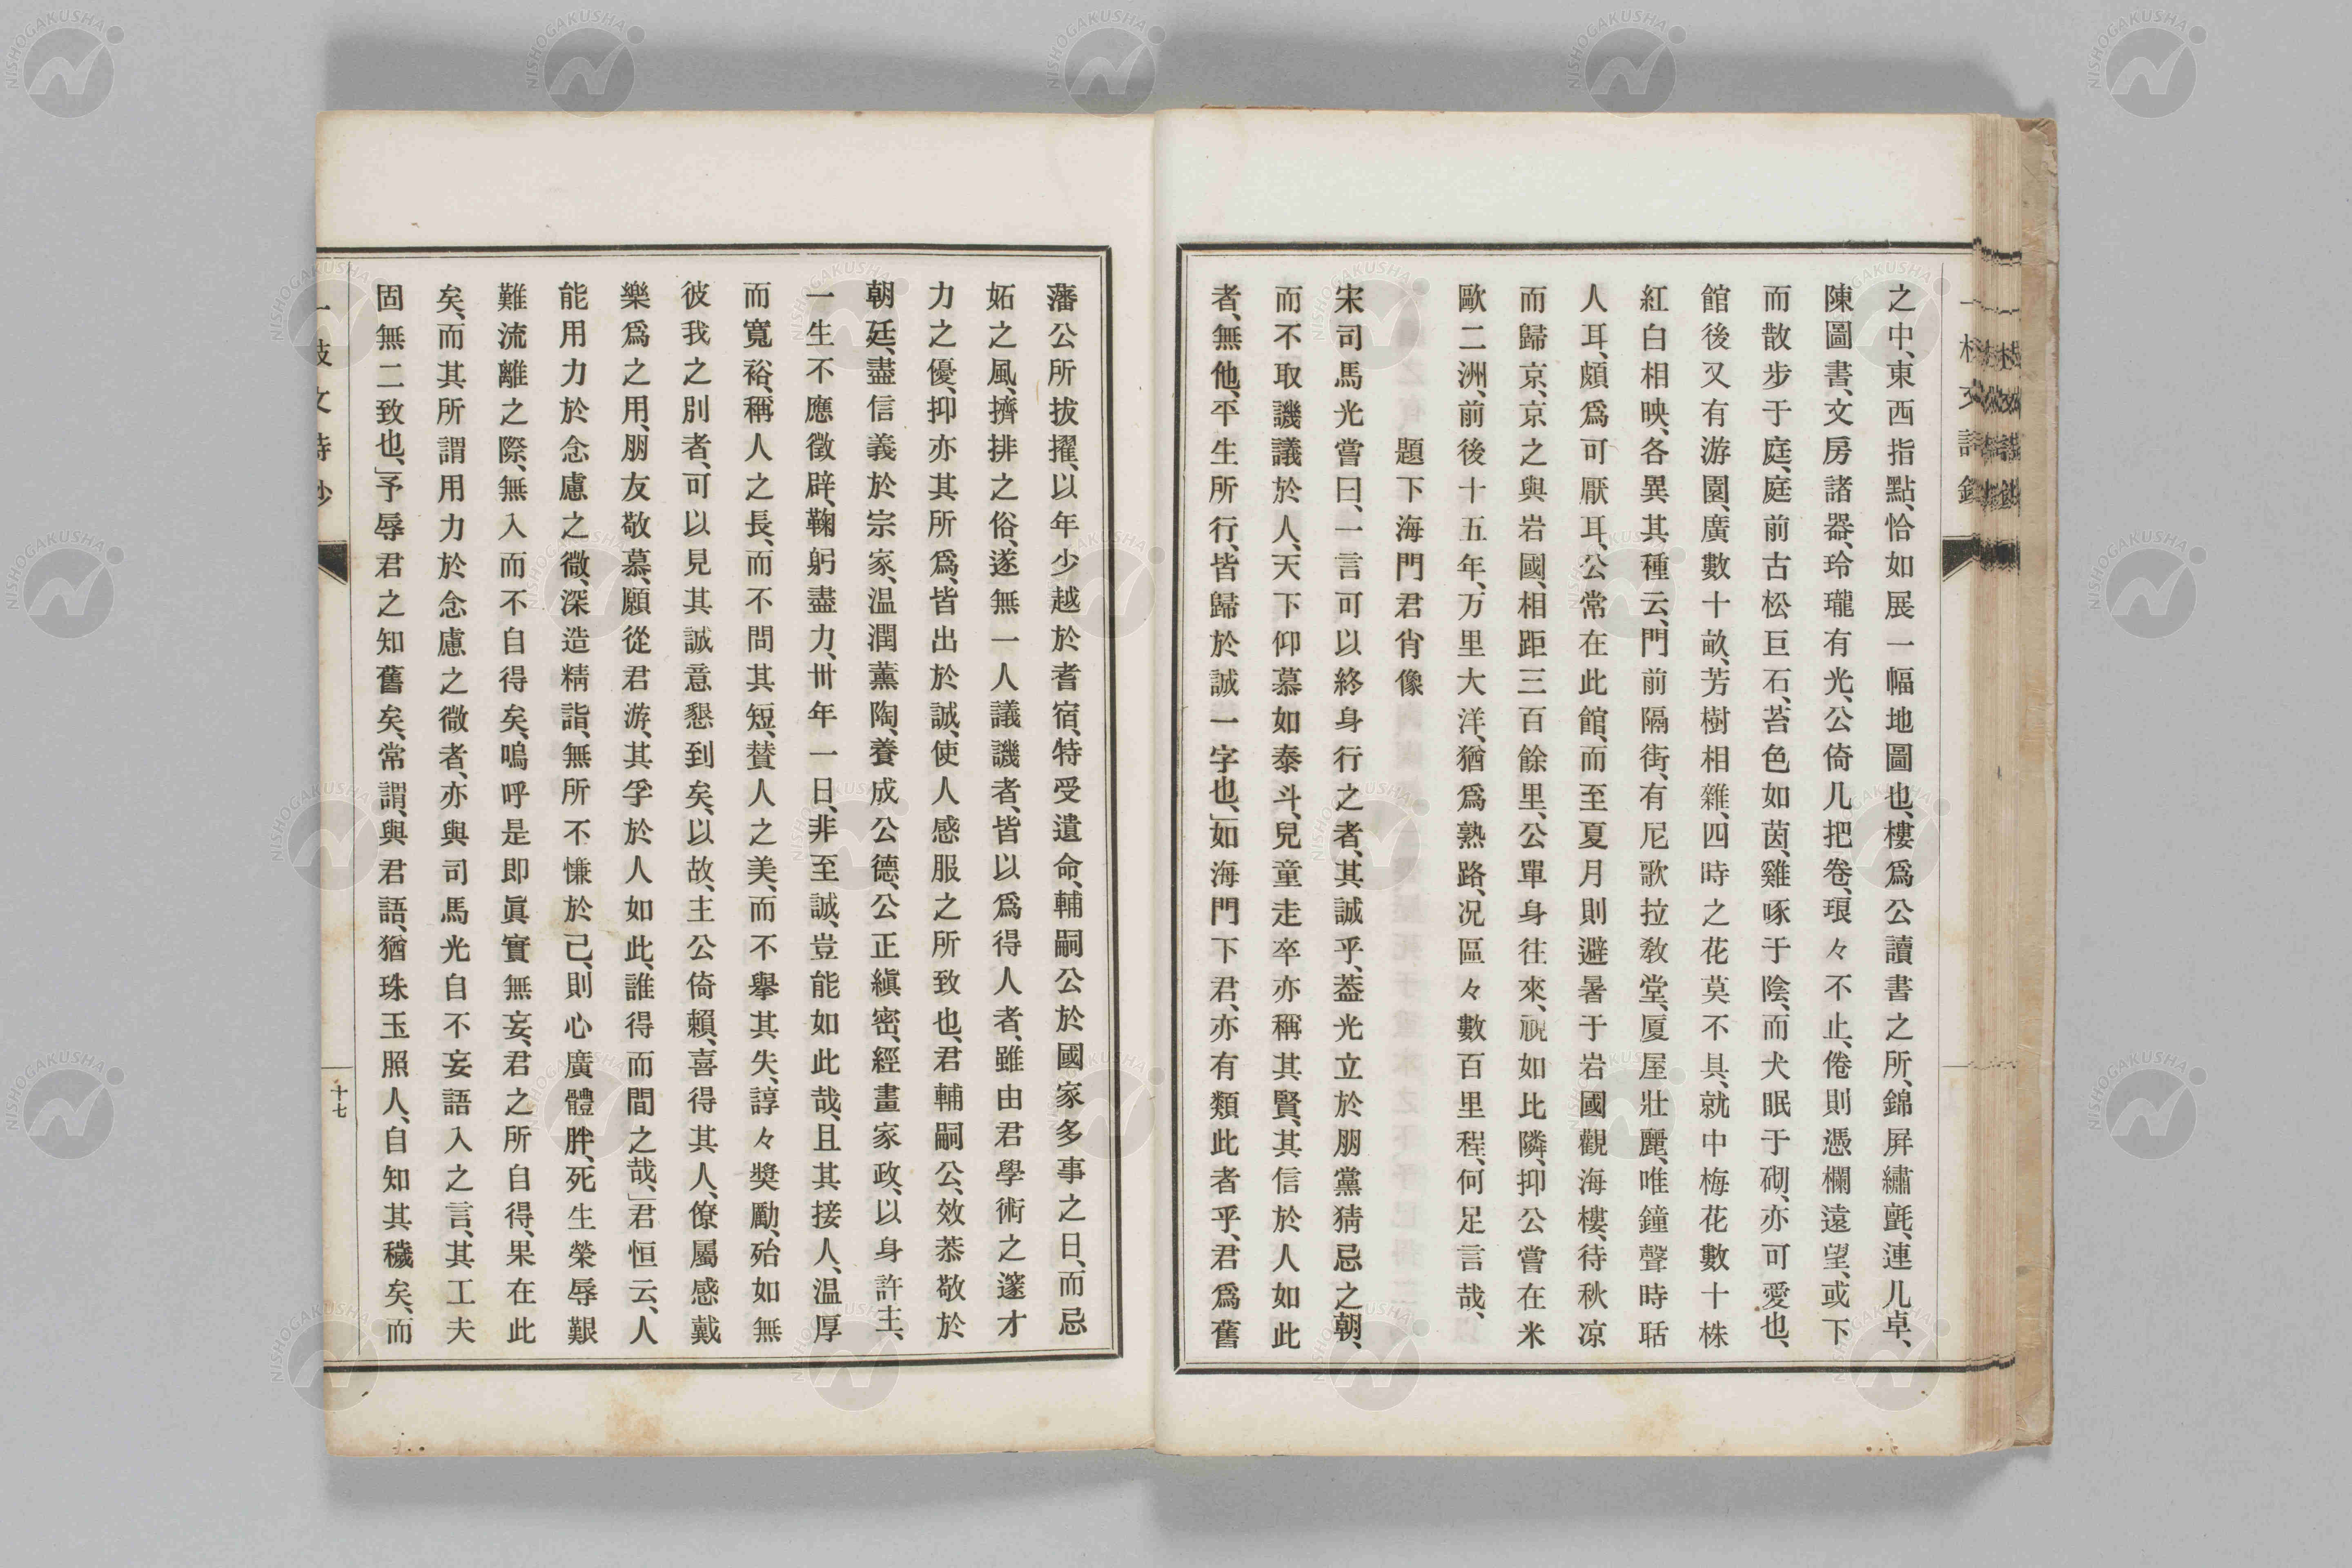 之中、東西指點、恰如展一幅地圖也、樓爲公讀書之所、錦屛繡氈、連几卓、
陳圖書、文房諸器、玲瓏有光、公倚几把卷、琅々不止、倦則憑欄遠望、或下
而散步于庭、庭前古松巨石、苔色如茵、雞啄于陰、而犬眠于砌、亦可愛也、
館後又有游園、廣數十畝、芳樹相雜、四時之花莫不具、就中梅花數十株
紅白相映、各異其種云、門前隔街、有尼歌拉敎堂、厦屋壯麗、唯鐘聲時聒
人耳、頗爲可厭耳、公常在此館、而至夏月則避暑于岩國觀海樓、待秋凉
而歸京、京之與岩國、相距三百餘里、公單身往來、視如比隣、抑公嘗在米
歐二洲、前後十五年、万里大洋、猶爲熟路、况區々數百里程、何足言哉、
題下海門君肖像
宋司馬光嘗曰、一言可以終身行之者、其誠乎、葢光立於朋黨猜忌之朝、
而不取譏議於人、天下仰慕如泰斗、兒童走卒亦稱其賢、其信於人如此
者、無他、平生所行、皆歸於誠一字也、」如海門下君、亦有類此者乎、君爲舊
藩公所拔擢、以年少越於耆宿、特受遺命、輔嗣公於國家多事之日、而忌
妬之風、擠排之俗、遂無一人議譏者、皆以爲得人者、雖由君學術之邃才
力之優、抑亦其所爲、皆出於誠、使人感服之所致也、君輔嗣公、效恭敬於
朝廷、盡信義於宗家、温潤薰陶、養成公德、公正縝密、經畫家政、以身許主、
一生不應徵辟、鞠躬盡力、卅年一日、非至誠、豈能如此哉、且其接人、温厚
而寬裕、稱人之長、而不問其短、賛人之美、而不擧其失、諄々奬勵、殆如無
彼我之別者、可以見其誠意懇到矣、以故、主公倚賴、喜得其人、僚屬感戴
樂爲之用、朋友敬慕、願從君游、其孚於人如此、誰得而間之哉、」君恒云、人
能用力於念慮之微、深造精詣、無所不慊於己、則心廣體胖、死生榮辱艱
難流離之際、無入而不自得矣、嗚呼是即眞實無妄、君之所自得、果在此
矣、而其所謂用力於念慮之微者、亦與司馬光自不妄語入之言、其工夫
固無二致也、」予辱君之知舊矣、常謂、與君語、猶珠玉照人、自知其穢矣、而
十七